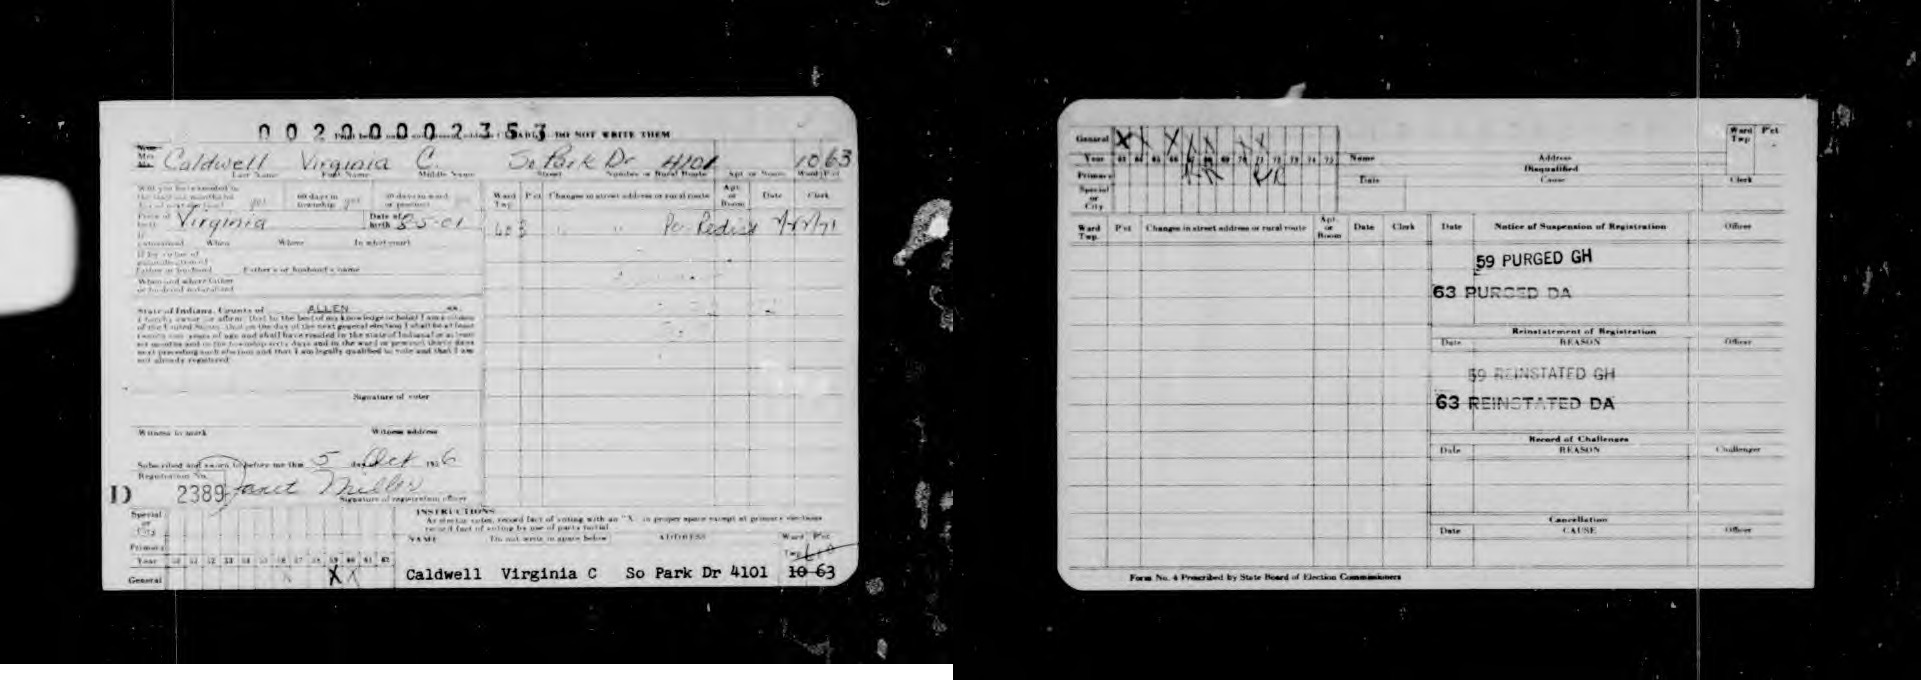 00200002353
DO NOT WRITE THEM
Mrs. Caldwell Virginia C. So Park Dr 4101 10 63
Last Name First Name Middle Name Street Number or Rural Route Apt or Room Ward Pct
60 days in township yes
Ward Twp. Pct Changes in street address or rural route Apt. or Room Date Clerk
Place of birth Virginia Date of birth 3-5-01
603 " " Per Redist
When Where In what court
Father's or husband's name
State of Indiana, County of ALLEN ss.
I hereby swear or affirm that to the best of my knowledge or belief I am a citizen
of the United States, that on the day of the next general election I shall be at least
twenty one years of age and shall have resided in the state of Indiana for at least
six months and in the township sixty days and in the ward or precinct thirty days
next preceding such election and that I am legally qualified to vote and that I am
not already registered
Signature of voter
Witness to mark Witness address
Subscribed and sworn to before me this 5 day Oct 1956
Registration No.
D 2389 Janet Miller
Signature of registration officer
INSTRUCTIONS
As elector votes, record fact of voting with an "X" in proper space except at primary elections
record fact of voting by use of party initial
Special or City
Primary
Year
General
NAME Do not write in space below ADDRESS Ward Pct
Twp
Caldwell Virginia C So Park Dr 4101 10 63
General
Year 63 64 65 66 67 68 69 70 71 72 73 74 75
Primary
Special or City
Name Address Ward Twp. Pct
Disqualified
Date Cause Clerk
Ward Twp. Pct Changes in street address or rural route Apt. or Room Date Clerk
Date Notice of Suspension of Registration Officer
59 PURGED GH
63 PURGED DA
Reinstatement of Registration
Date REASON Officer
59 REINSTATED GH
63 REINSTATED DA
Record of Challenges
Date REASON Challenger
Cancellation
Date CAUSE Officer
Form No. 4 Prescribed by State Board of Election Commissioners